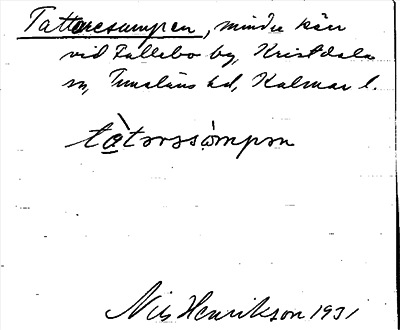 Tattaresumpen, mindre kärr
vid Fallebo by, Kristdala
sn, Tunaläns hd, Kalmar l.
tàtarssòmpən
Nils Henrikson 1931